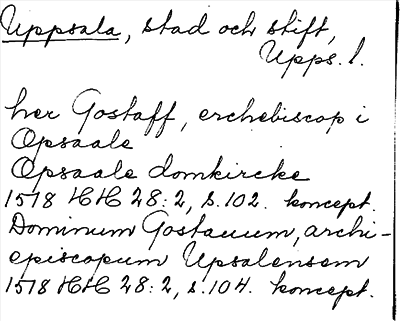 Uppsala, stad och stift,
Upps. l.
her Gostaff, erchebiscop i
Opsaale
Opsaale domkircke
1518 HH 28:2, s. 102. koncept.
Dominum Gostauum, archi-
episcopum Upsalensem
1518 HH 28:2, s. 104. koncept.